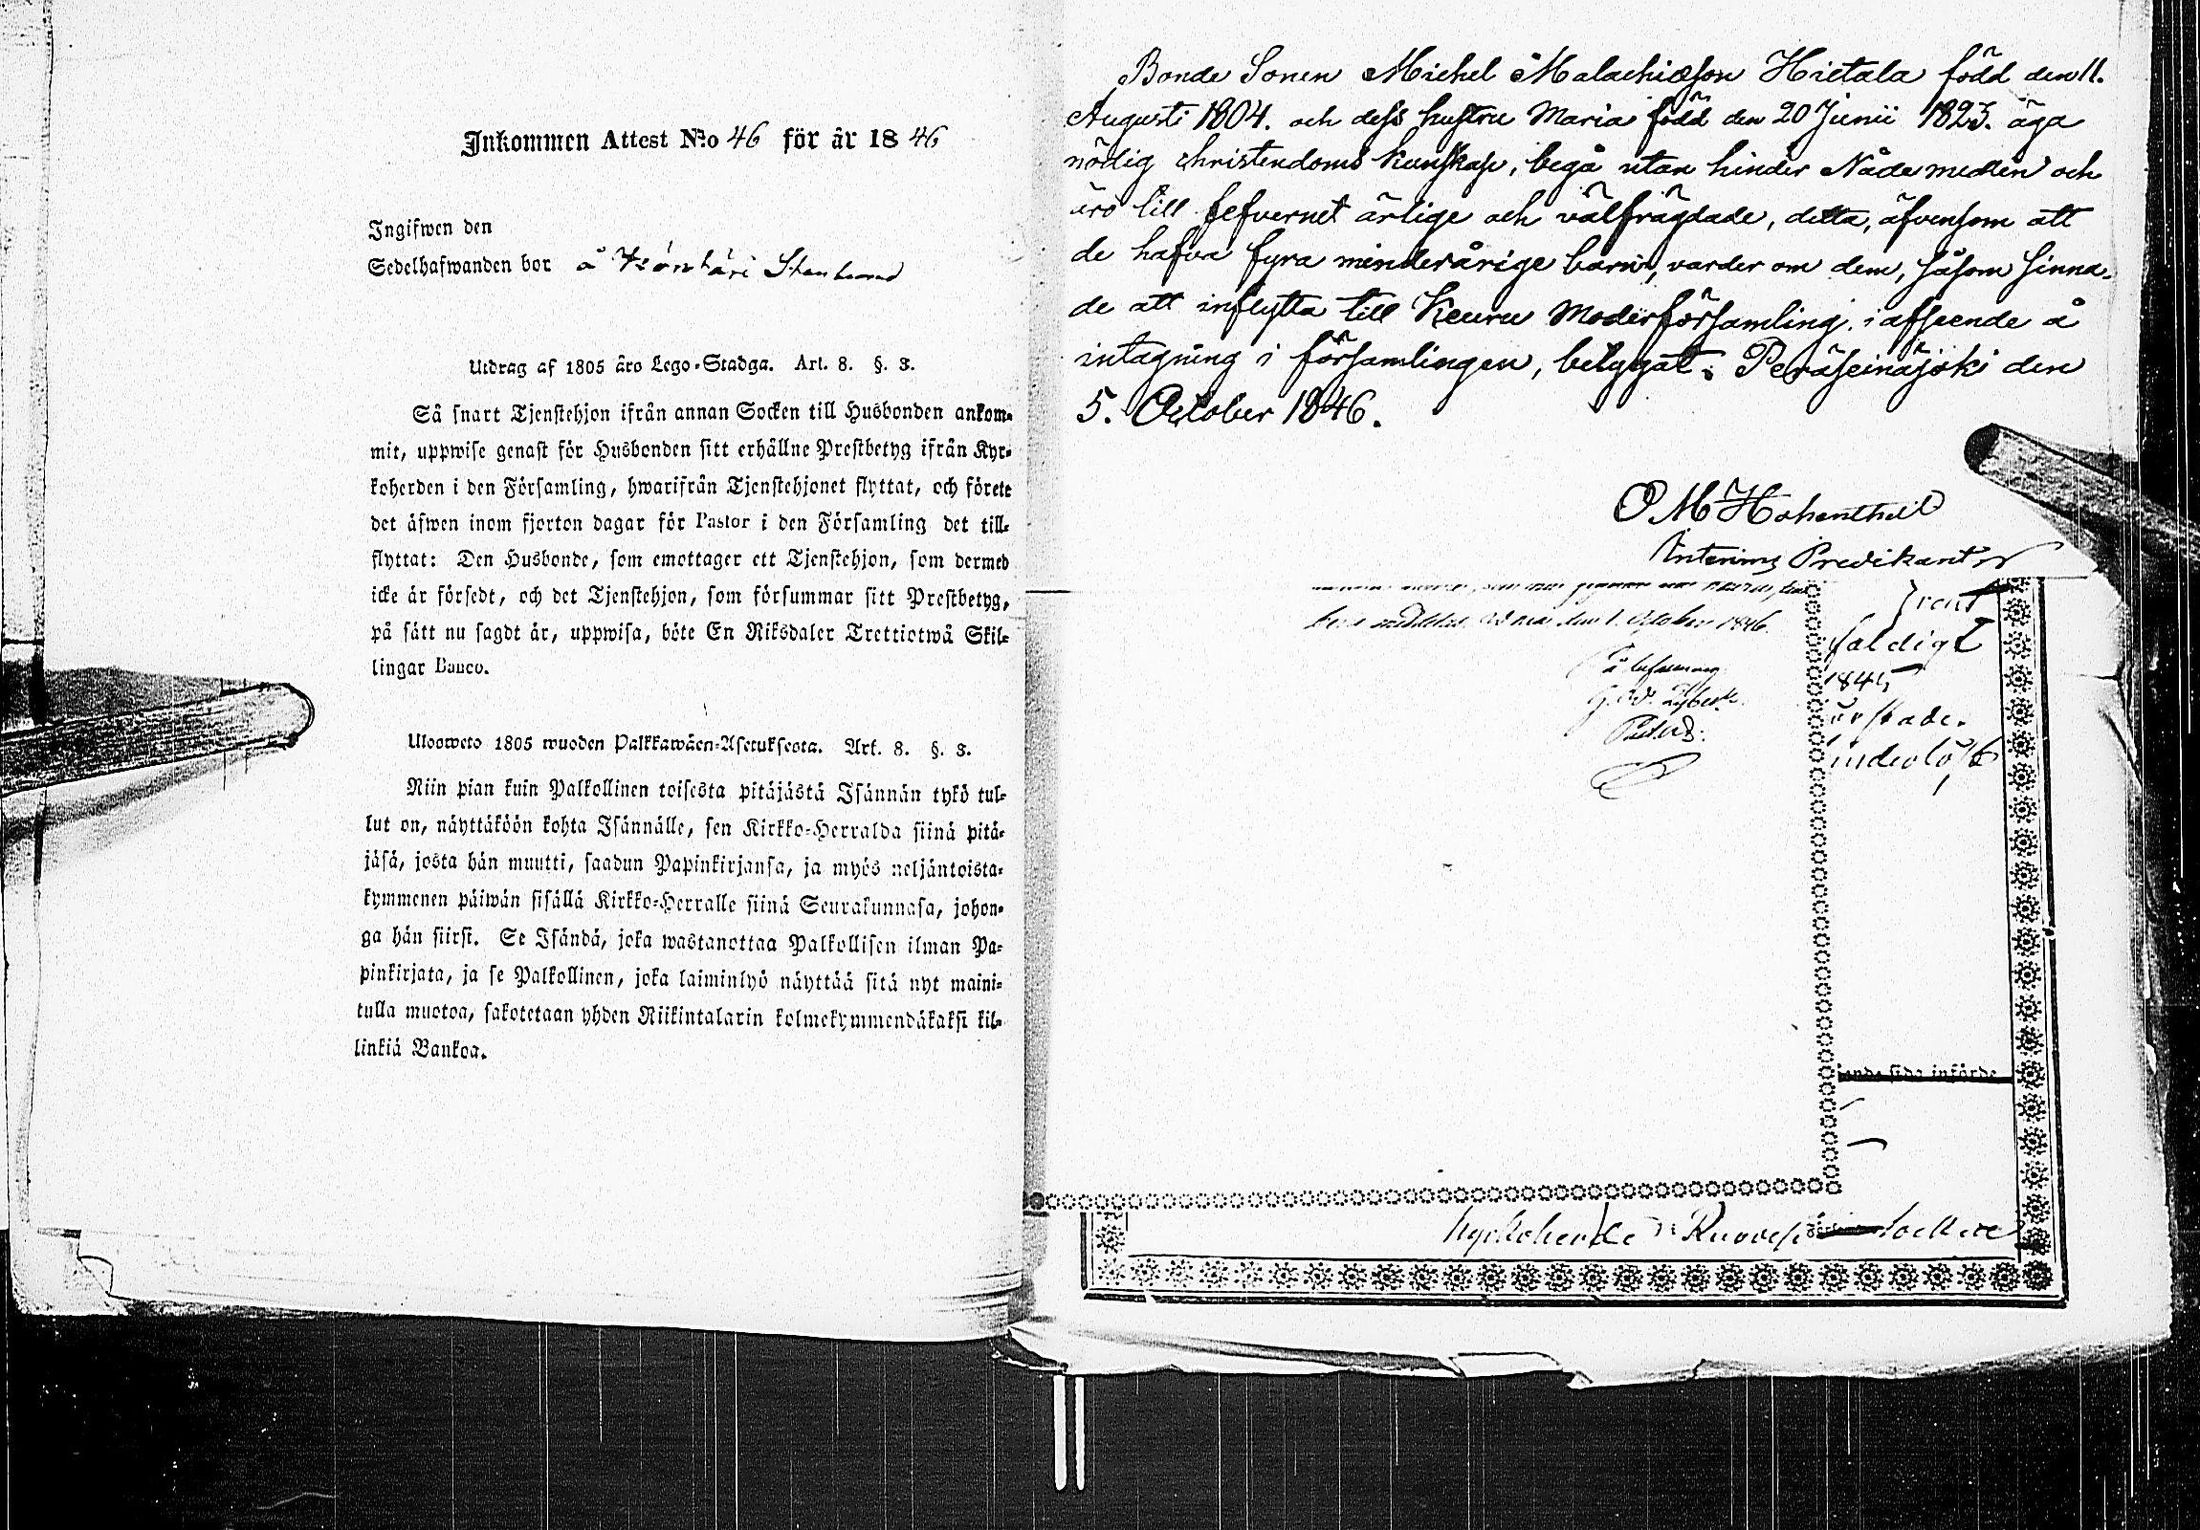 Inkommen Attest N:o 46 för år 1846
Ingifwen den
Sedelhafwanden bor å
Utdrag af 1805 års Lego-Stadga. Art. 8. §. 3.
Så snart Tjenstehjon ifrån annan Socken till Husbonden ankom-
mit, uppwise genast för Husbonden sitt erhållne Prestbetyg ifrån Kyr-
koherden i den Församling, hwarifrån Tjenstehjonet flyttat, och förete
det äfwen inom fjorton dagar för Pastor i den Församling det till-
flyttat: Den Husbonde, som emottager ett Tjenstehjon, som dermed
icke är försedt, och det Tjenstehjon, som försummar sitt Prestbetyg,
på sätt nu sagdt är, uppwisa, böte En Riksdaler Trettiotwå Skil-
lingar Banco.
Ulosweto 1805 wuoden Palkkawäen-Asetuksesta. Art. 8. §. 3.
Niin pian kuin Palkollinen toisesta pitäjästä Isännän tykö tul-
lut on, näyttäköön kohta Isännälle, sen Kirkko-Herralda siinä pitä-
jäsä, josta hän muutti, saadun Papinkirjansa, ja myös neljäntoista-
kymmenen päiwän sisällä Kirkko-Herralle siinä Seurakunnasa, johon-
ga hän siirsi. Se Isändä, joka wastanottaa Palkollisen ilman Pa-
pinkirjata, ja se Palkollinen, joka laiminlyö näyttää sitä nyt maini-
tulla muotoa, sakotetaan yhden Riikintalarin kolmekymmendäkaksi kil-
linkiä Bankoa.
Bonde Sonen Michel Malachiæson Hietala född den 11.
Augusti 1804. och dess hustru Maria född den 20 Junii 1823. äga
nödig christendoms kunskap, begå utan hinder Nådemedlen och
äro till lefvernet ärlige och välfrägdade, detta, äfvensom att
de hafva fyra minderårige barn, varder om dem, såsom sinna-
de att inflytta till Keuru Moderförsamling, i afseende å
intagning i församlingen, betygat; Peräseinäjoki den
5. October 1846.
O M Hohenthal
Interims Predikant
den 1. October 1846.
faldigt
1845
ende sida införde
Kyrkoherde i Ruovesi Socken